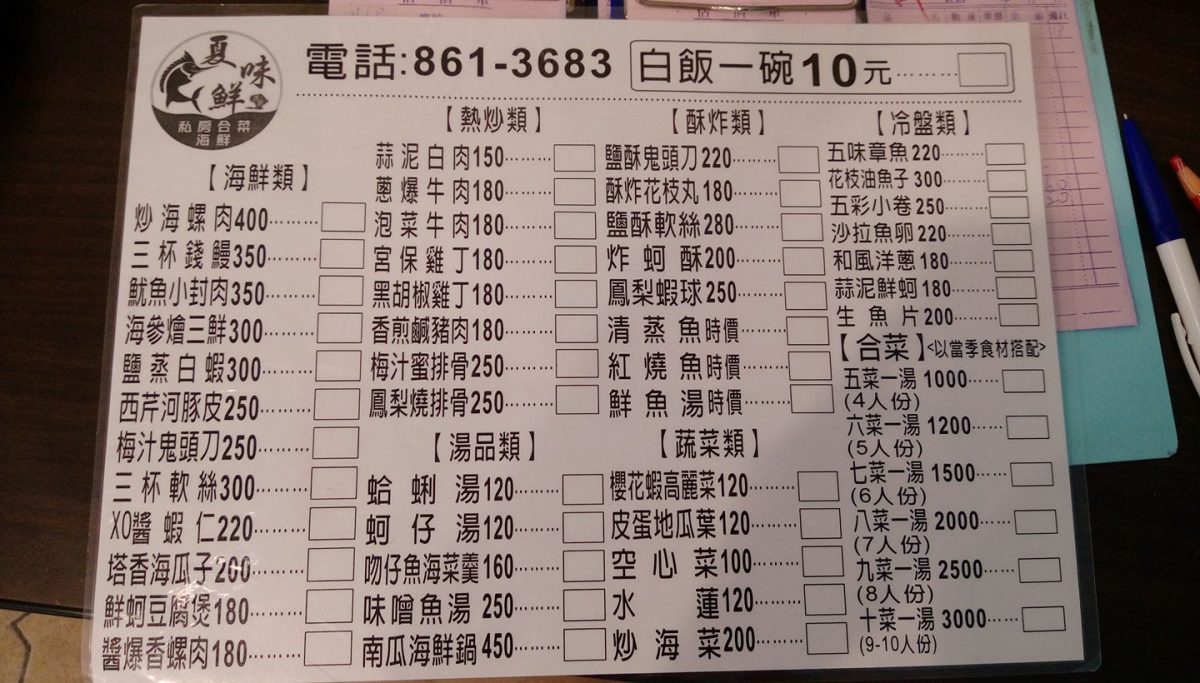 夏味鮮
私房合菜
海鮮
電話:861-3683
白飯一碗10元………
【海鮮類】
炒海螺肉400………
三杯錢鰻350………
魷魚小封肉350………
海參燴三鮮300………
鹽蒸白蝦300………
西芹河豚皮250………
梅汁鬼頭刀250………
三杯軟絲300………
XO醬蝦仁220………
塔香海瓜子200………
鮮蚵豆腐煲180………
醬爆香螺肉180………
【熱炒類】
蒜泥白肉150………
蔥爆牛肉180………
泡菜牛肉180………
宮保雞丁180………
黑胡椒雞丁180………
香煎鹹豬肉180………
梅汁蜜排骨250………
鳳梨燒排骨250………
【湯品類】
蛤蜊湯120………
蚵仔湯120………
吻仔魚海菜羹160………
味噌魚湯250………
南瓜海鮮鍋450………
【酥炸類】
鹽酥鬼頭刀220………
酥炸花枝丸180………
鹽酥軟絲280………
炸蚵酥200………
鳳梨蝦球250………
清蒸魚時價………
紅燒魚時價………
鮮魚湯時價………
【蔬菜類】
櫻花蝦高麗菜120………
皮蛋地瓜葉120………
空心菜100………
水蓮120………
炒海菜200………
【冷盤類】
五味章魚220………
花枝油魚子300………
五彩小卷250………
沙拉魚卵220………
和風洋蔥180………
蒜泥鮮蚵180………
生魚片200………
【合菜】<以當季食材搭配>
五菜一湯1000………
(4人份)
六菜一湯1200………
(5人份)
七菜一湯1500………
(6人份)
八菜一湯2000………
(7人份)
九菜一湯2500………
(8人份)
十菜一湯3000………
(9-10人份)